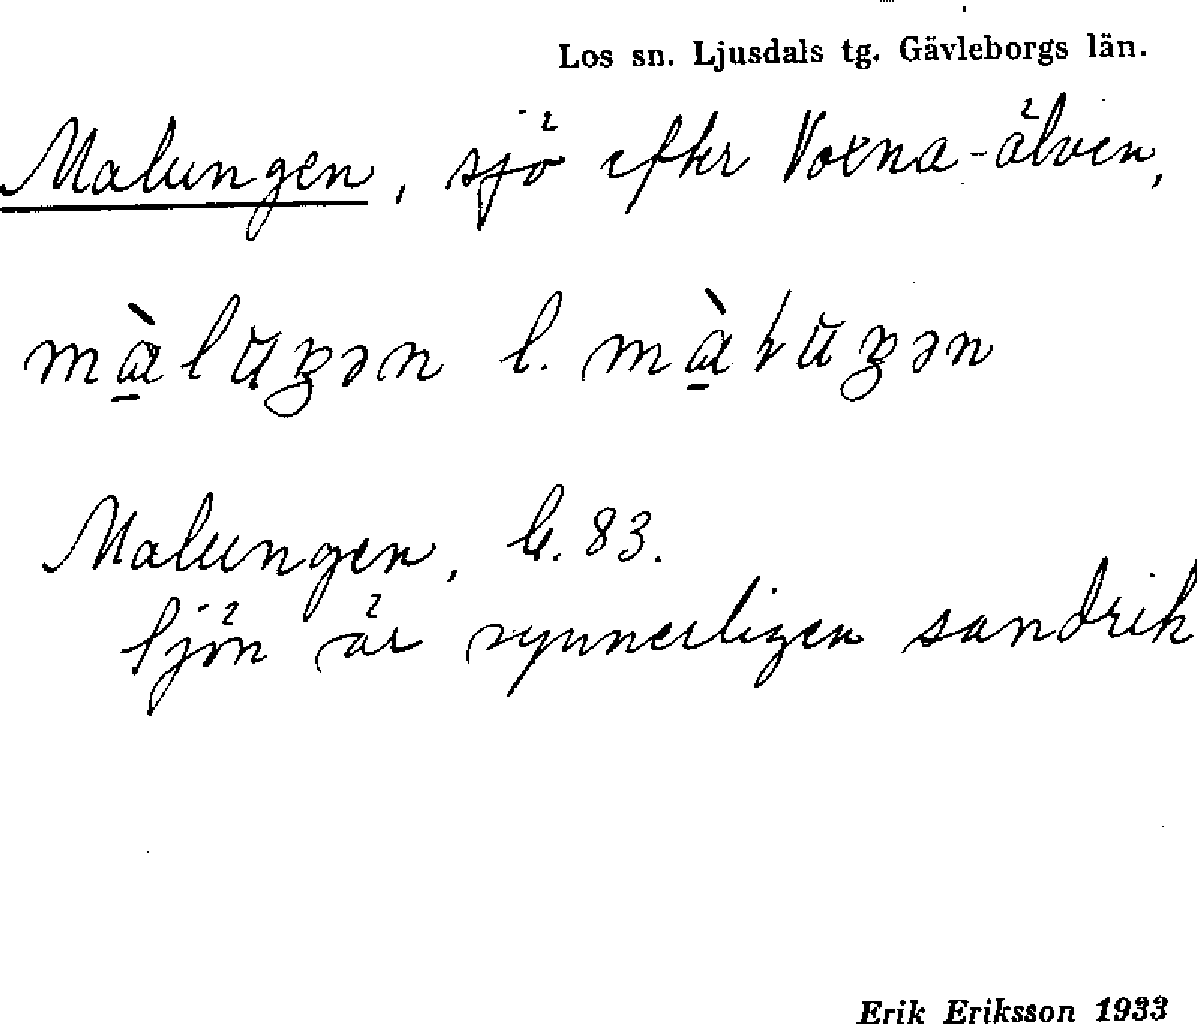 Los sn. Ljusdals tg. Gävleborgs län.
Malungen, sjö efter Voxna-älven,
Malungen, bl. 83.
Sjön är synnerligen sandrik
Erik Eriksson 1933